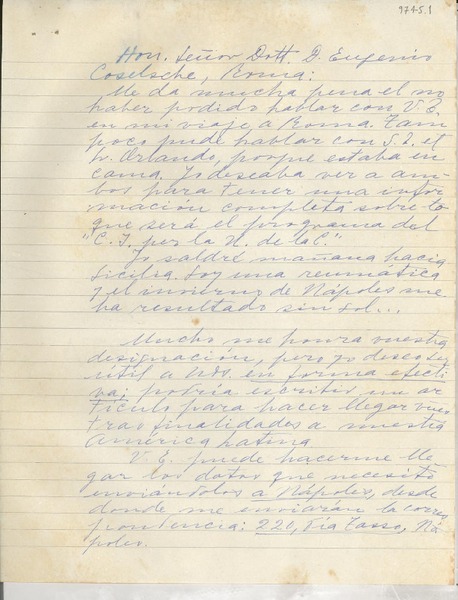 974-5.1
Hon. Señor Dott. D. Eugenio
Coselsche, Roma:
Me da mucha pena el no
haber podido hablar con V. E.
en mi viaje a Roma. Tam
poco pude hablar con S. E. el
Sr. Orlando, porque estaba en
cama. Yo deseaba ver a am-
bos para tener una infor
mación completa sobre lo
que será el programa del
"C. I. per la U. de la C."
Yo saldré mañana hacia
Sicilia. Soy una reumática
y el invierno de Nápoles me
ha resultado sin sol...
Mucho me honra vuestra
designación, pero yo deseo ser
útil a Uds. en forma efecti
va; podría escribir un ar
tículo para hacer llegar vues
tras finalidades a nuestra
América Latina
V. E. puede hacerme lle
gar los datos que necesito
enviándolos a Nápoles, desde
donde me enviarán la corres
pondencia: 220, Vía Tasso, Ná
poles.